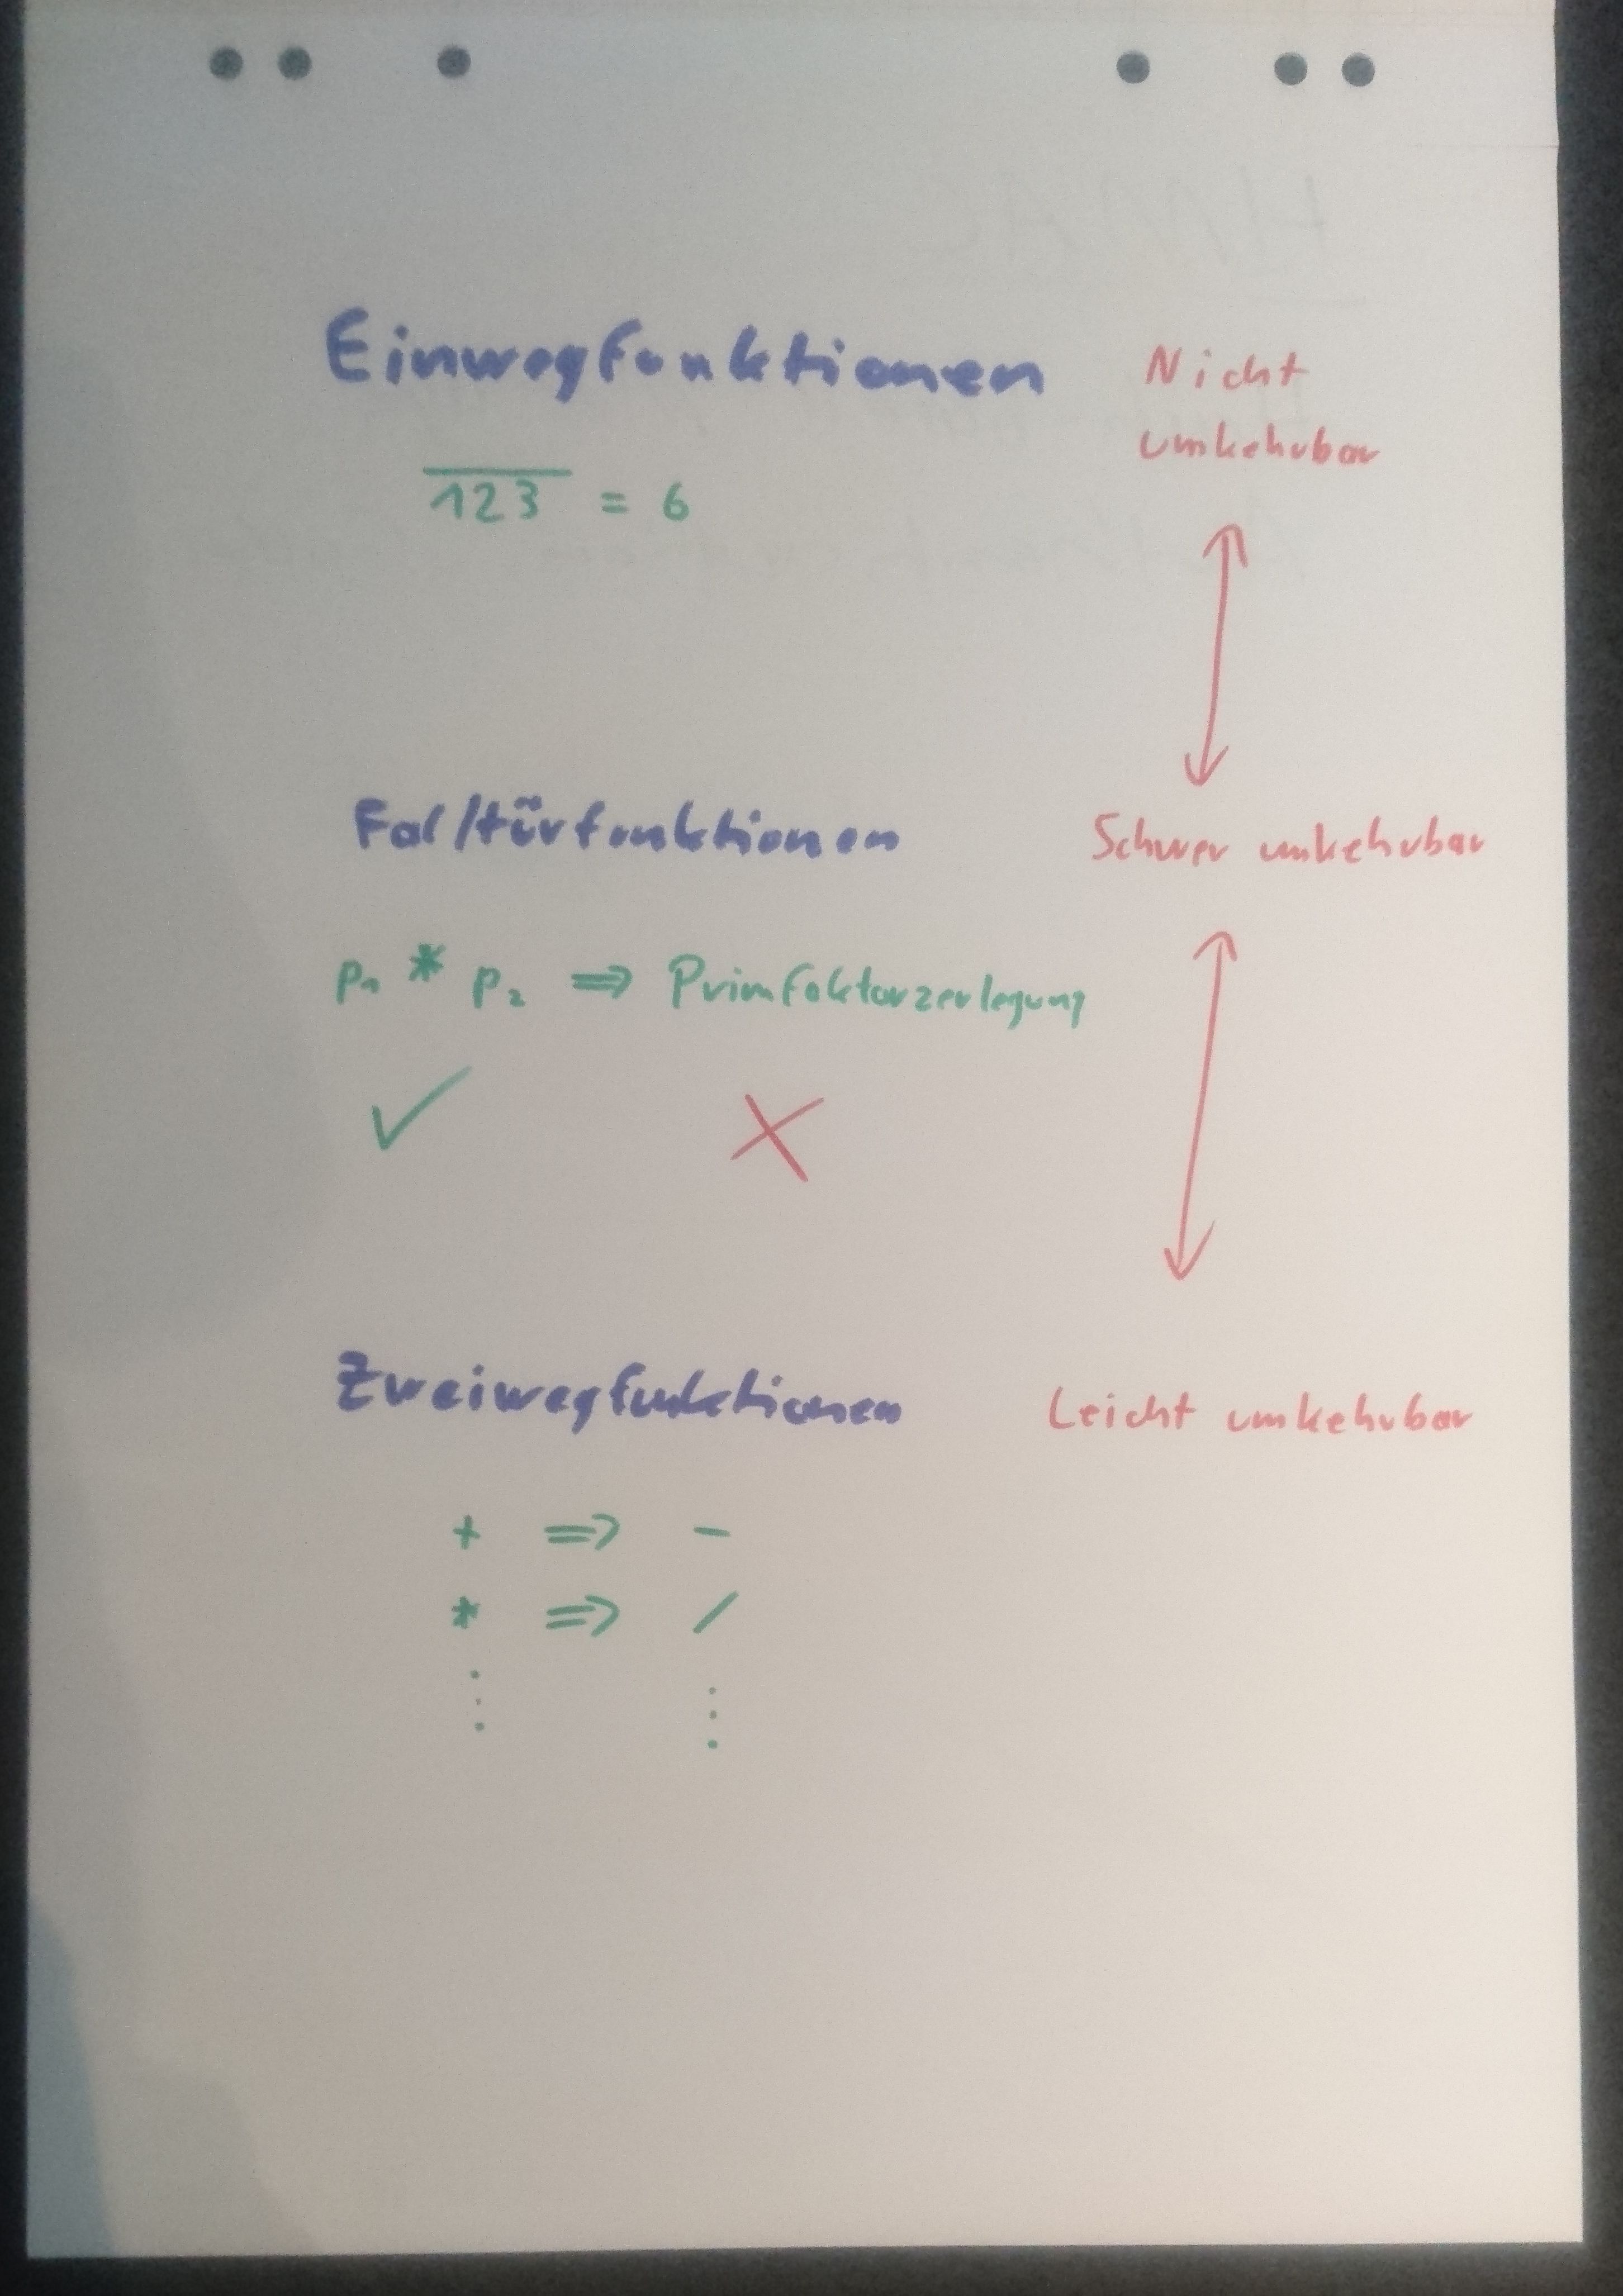 Einwegfunktionen
Nicht
umkehrbar
123 = 6
Falltürfunktionen
Schwer umkehrbar
p₁ * p₂ ⇒ Primfaktorzerlegung
✓ X
Zweiwegfunktionen
Leicht umkehrbar
+ ⇒ -
* ⇒ /
⋮ ⋮